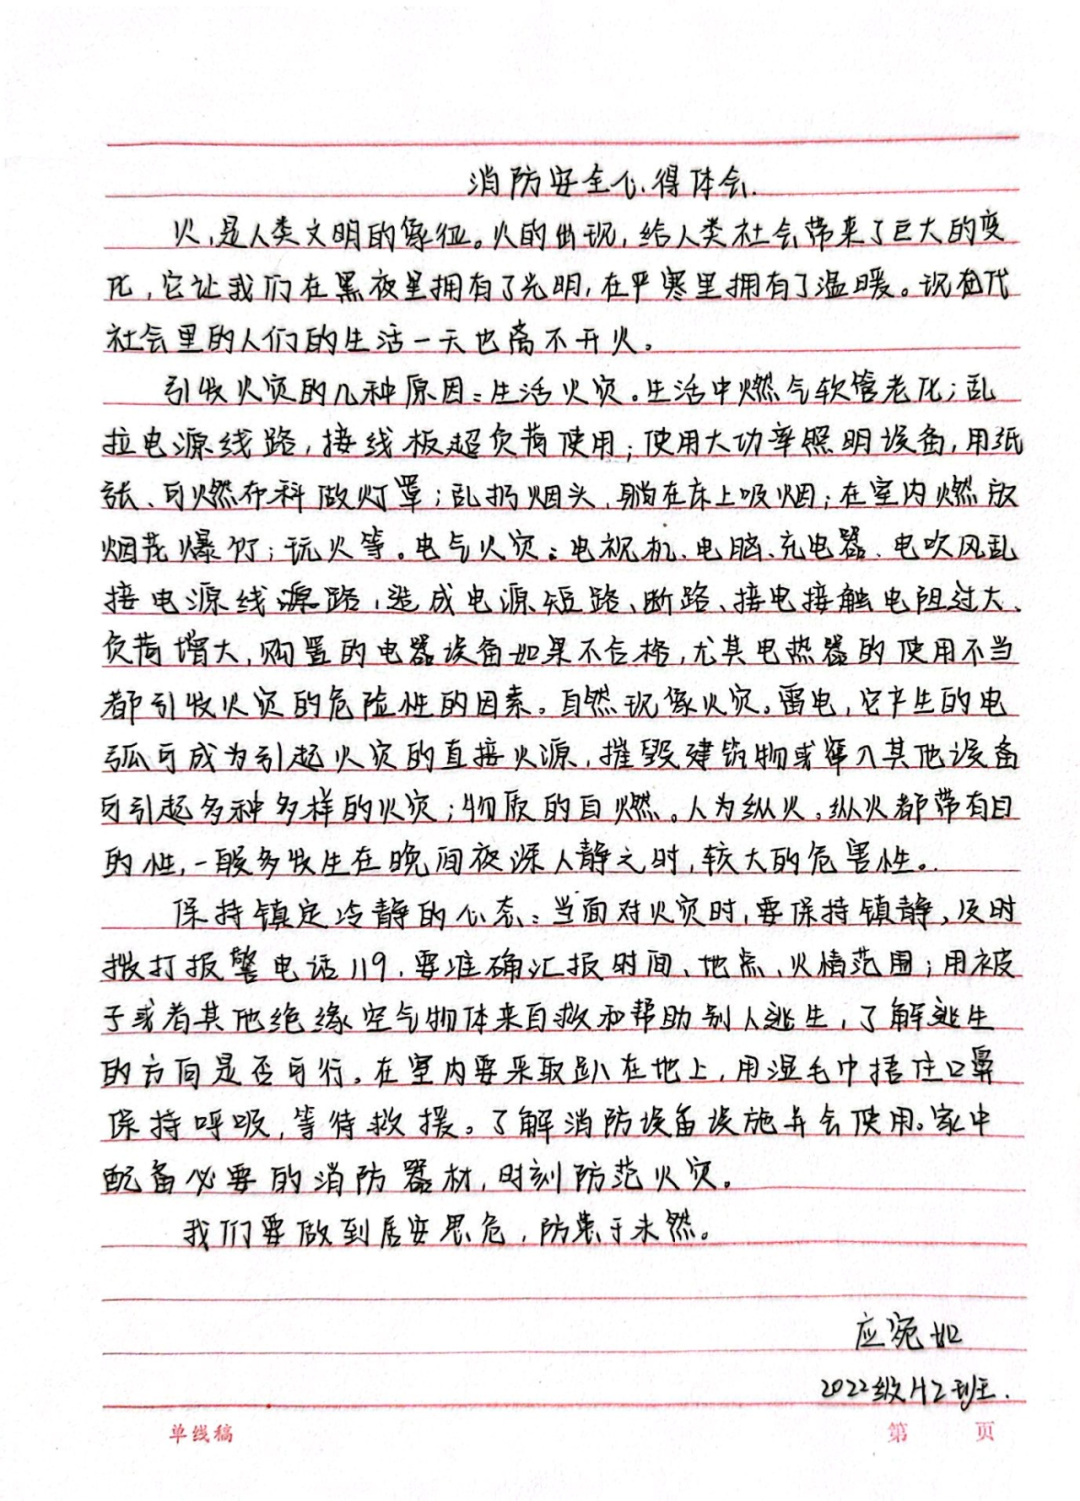 消防安全心得体会.
火,是人类文明的象征。火的出现,给人类社会带来了巨大的变
化,它让我们在黑夜里拥有了光明,在严寒里拥有了温暖。现在代
社会里的人们的生活一天也离不开火。
引发火灾的几种原因:生活火灾。生活中燃气软管老化;乱
拉电源线路,接线板超负荷使用;使用大功率照明设备,用纸
张、可燃布料做灯罩;乱扔烟头,躺在床上吸烟;在室内燃放
烟花爆竹;玩火等。电气火灾:电视机、电脑、充电器、电吹风乱
接电源线源路,造成电源短路、断路、接电接触电阻过大、
负荷增大,购置的电器设备如果不合格,尤其电热器的使用不当
都引发火灾的危险性的因素。自然现象火灾。雷电,它产生的电
弧可成为引起火灾的直接火源,摧毁建筑物或窜入其他设备
可引起多种多样的火灾;物质的自燃。人为纵火。纵火都带有目
的性,一般多发生在晚间夜深人静之时,较大的危害性。
保持镇定冷静的心态:当面对火灾时,要保持镇静,及时
拨打报警电话119,要准确汇报时间、地点、火情范围;用被
子或者其他绝缘空气物体来自救和帮助别人逃生,了解逃生
的方向是否可行。在室内要采取趴在地上,用湿毛巾捂住口鼻
保持呼吸,等待救援。了解消防设备设施并会使用。家中
配备必要的消防器材,时刻防范火灾。
我们要做到居安思危,防患于未然。
应宛如
2022级H2班.
单线稿 第 页